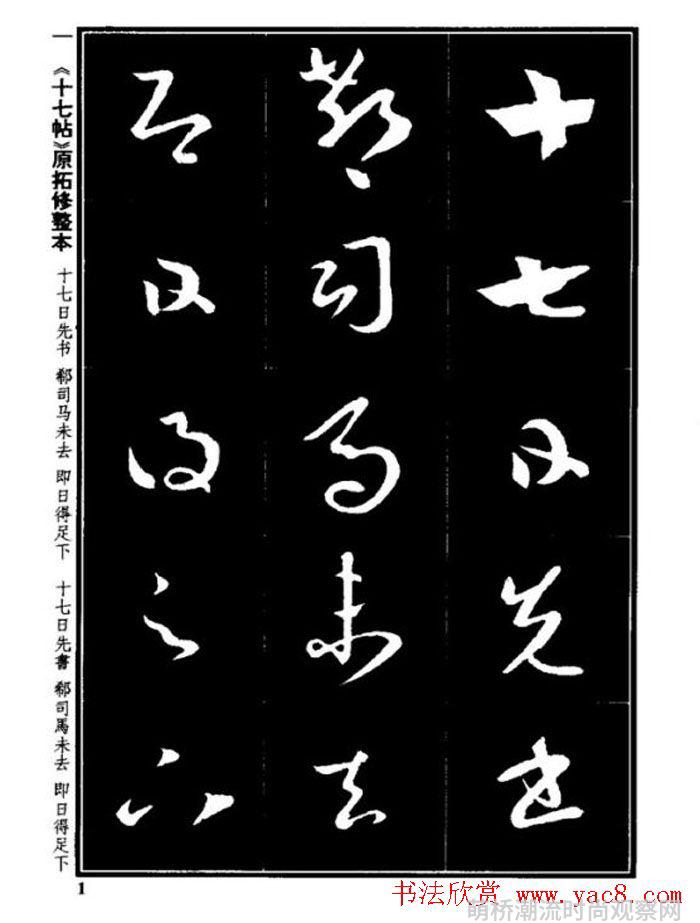 十七日先书
郗司马未去
即日得足下
一 《十七帖》原拓修整本 十七日先书 郗司马未去 即日得足下 十七日先書 郗司馬未去 即日得足下
1
书法欣赏 www.yac8.com
萌桥潮流时尚观察网